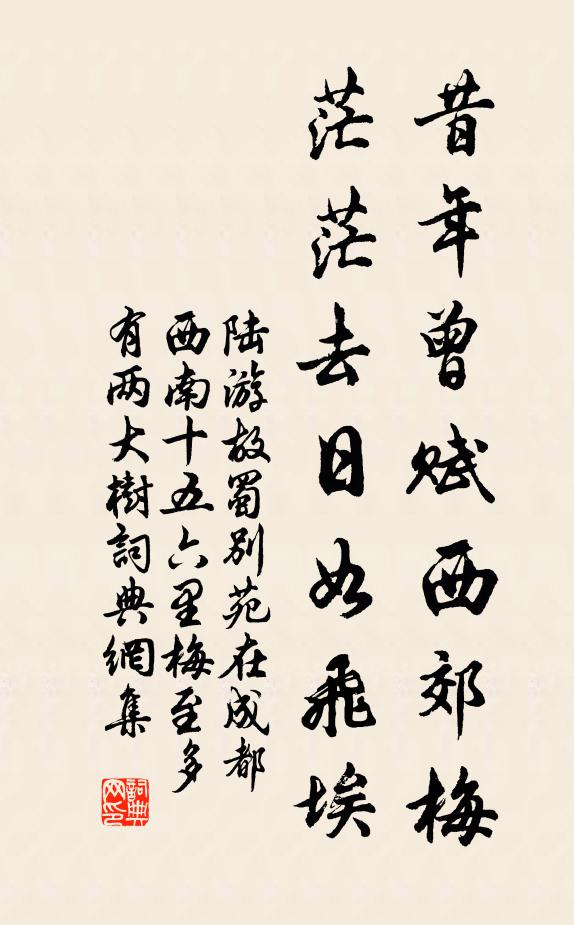 昔年曾赋西郊梅
茫茫去日如飛埃
陆游故蜀别苑在成都
西南十五六里梅至多
有两大樹詞典網集
詞典
网印